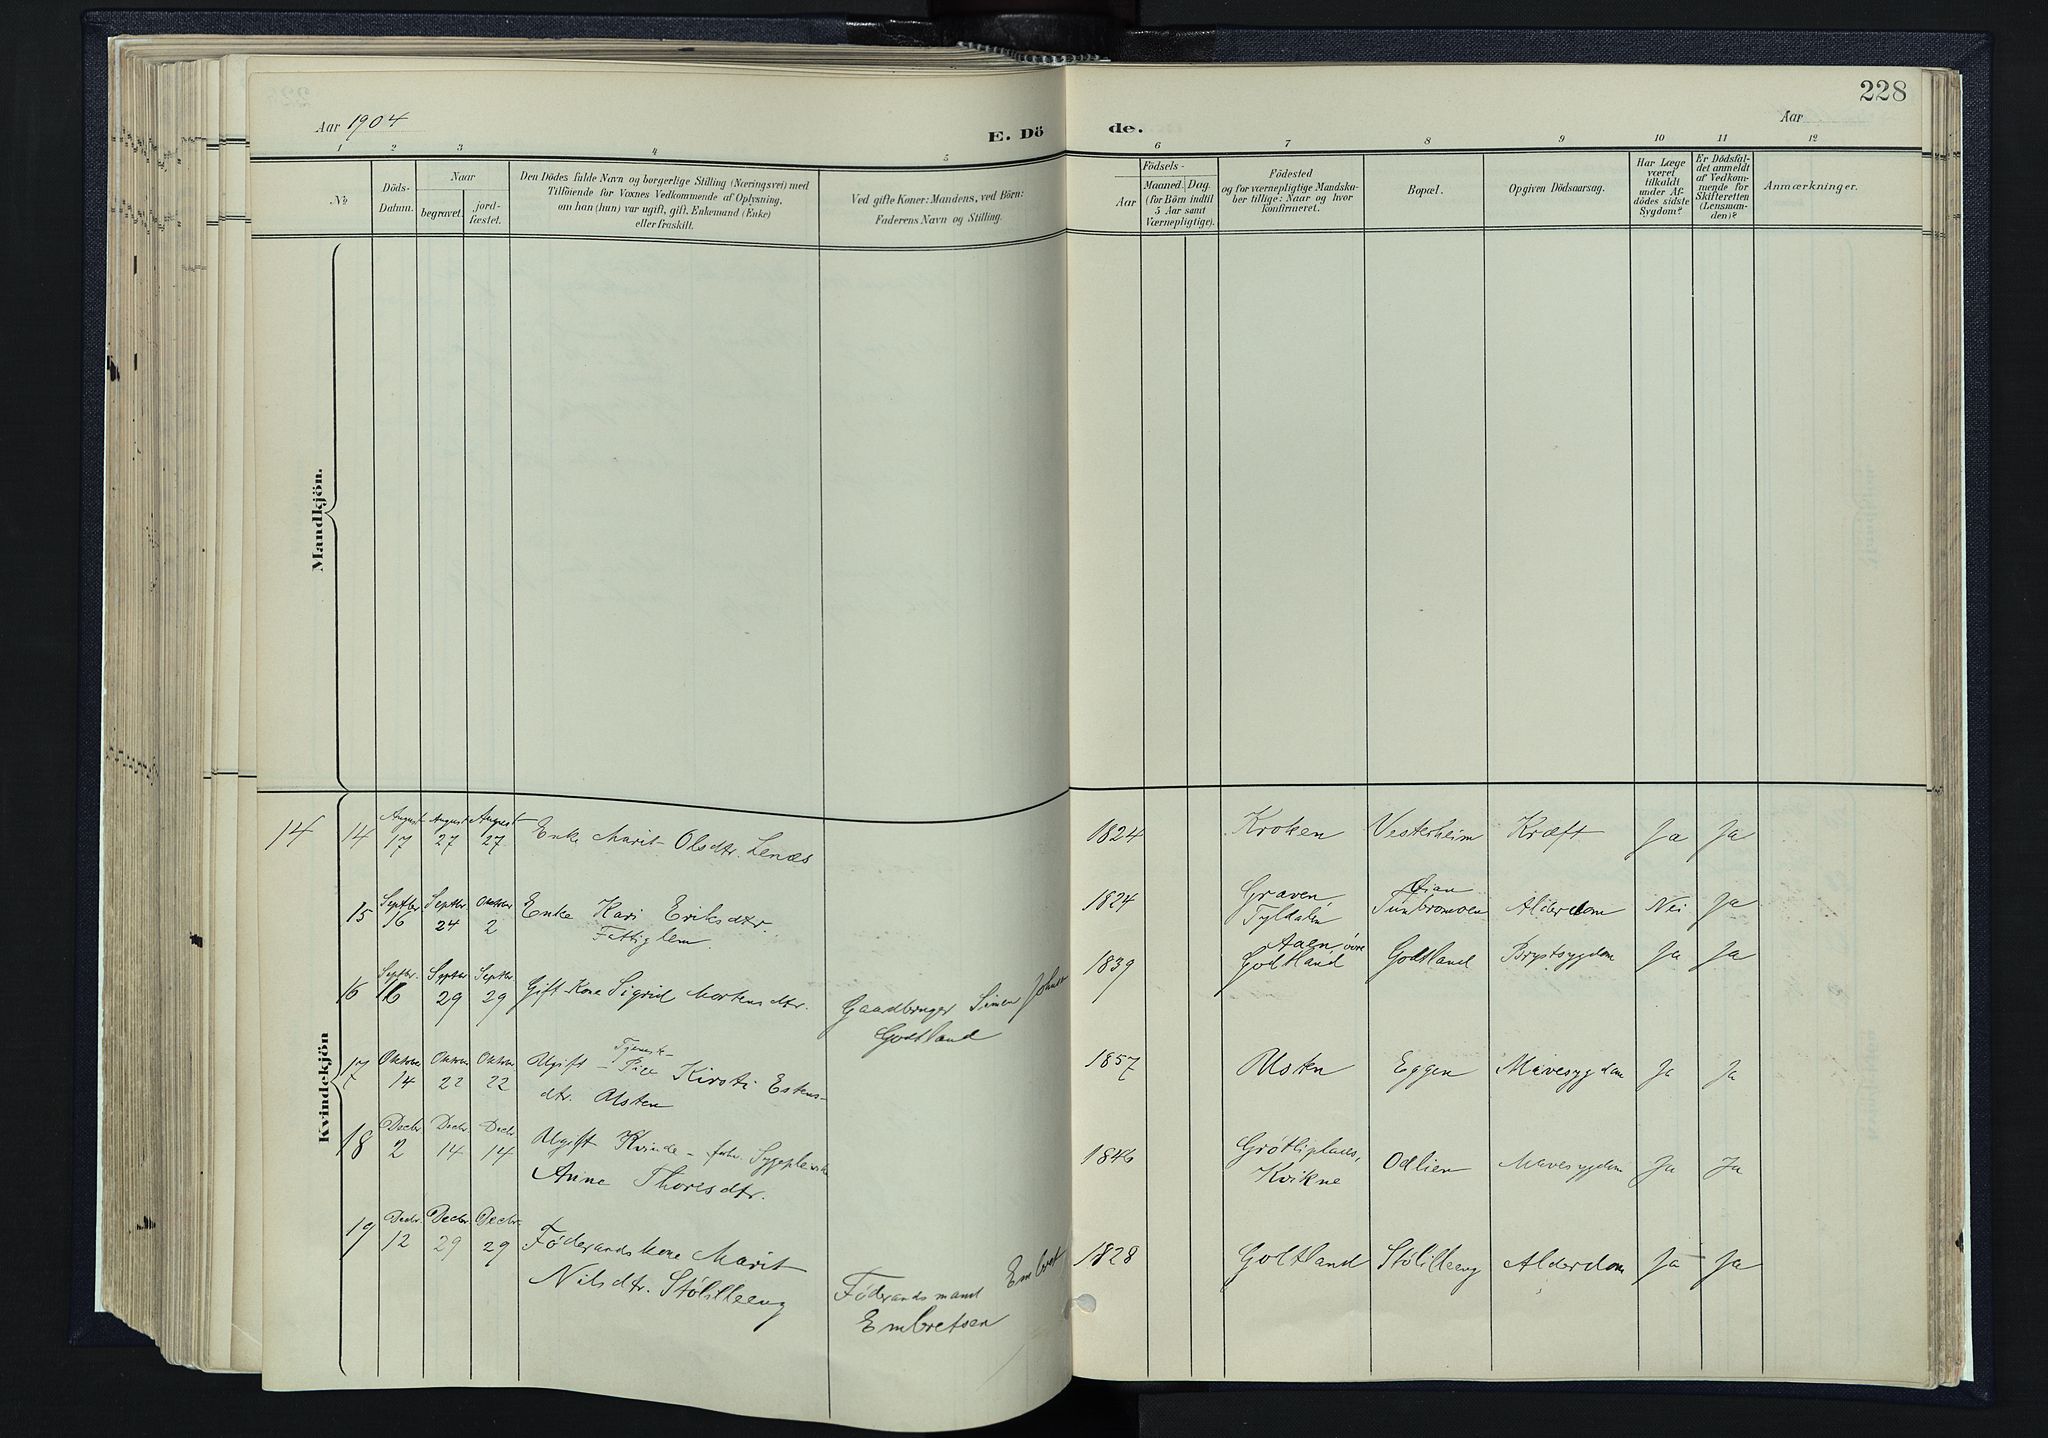 228
Aar 1904
E. Dö
de.
Aar
1 2 3 4 5 6 7 8 9 10 11 12
No
Döds-
Datum.
Naar
begravet.
jord-
fæstet.
Den Dödes fulde Navn og borgerlige Stilling (Næringsvei) med
Tilföiende for Voxnes Vedkommende af Oplysning,
om han (hun) var ugift, gift, Enkemand (Enke)
eller fraskilt.
Ved gifte Koner: Mandens, ved Börn:
Faderens Navn og Stilling.
Födsels-
Aar
Maaned. Dag.
(for Börn indtil
5 Aar samt
Værnepligtige).
Födested
og for værnepligtige Mandska-
ber tillige: Naar og hvor
konfirmeret.
Bopæl.
Opgiven Dödsaarsag.
Har Læge
været
tilkaldt
under Af-
dödes sidste
Sygdom?
Er Dödsfal-
det anmeldt
af Vedkom-
mende for
Skifteretten
(Lensman-
den)?
Anmærkninger.
Mandkjön.
Kvindekjön
14 14 August 17 August 27 August 27 Enke Marit Olsdtr. Lenæs 1824 Kroken Vesterheim Kræft Ja Ja
15 Septbr 16 Septbr 24 Oktober 2 Enke Kari Eriksdtr.
Fattiglem 1824 Græven,
Tyldalen Øian
Alderdom Nei Ja
16 Septbr. 16 Septbr 29 Septbr 29 Gift Kone Sigrid Mortensdtr. Gaardbruger Simen Johnsen
Godtland 1839 Aaen øvre
Godtland Godtland Brystsygdom Ja Ja
17 Oktober 14 Oktober 22 Oktober 22 Ugift Tjeneste-
Pige Kirsti Estens-
dtr. Alsten 1857 Alsten Eggen Mavesygdom Ja Ja
18 Decbr 2 Decbr 14 Decbr 14 Ugift Kvinde - forhv. Sygepleierske
Anne Thoresdtr. 1846 Grøtliplads,
Kvikne Odlien Mavesygdom Ja Ja
19 Decbr. 12 Decbr 29 Decbr. 29 Føderaadskone Marit
Nilsdtr. Stølilleeng Føderaadsmand Embret
Embretsen 1828 Godtland Stølilleeng Alderdom Ja Ja